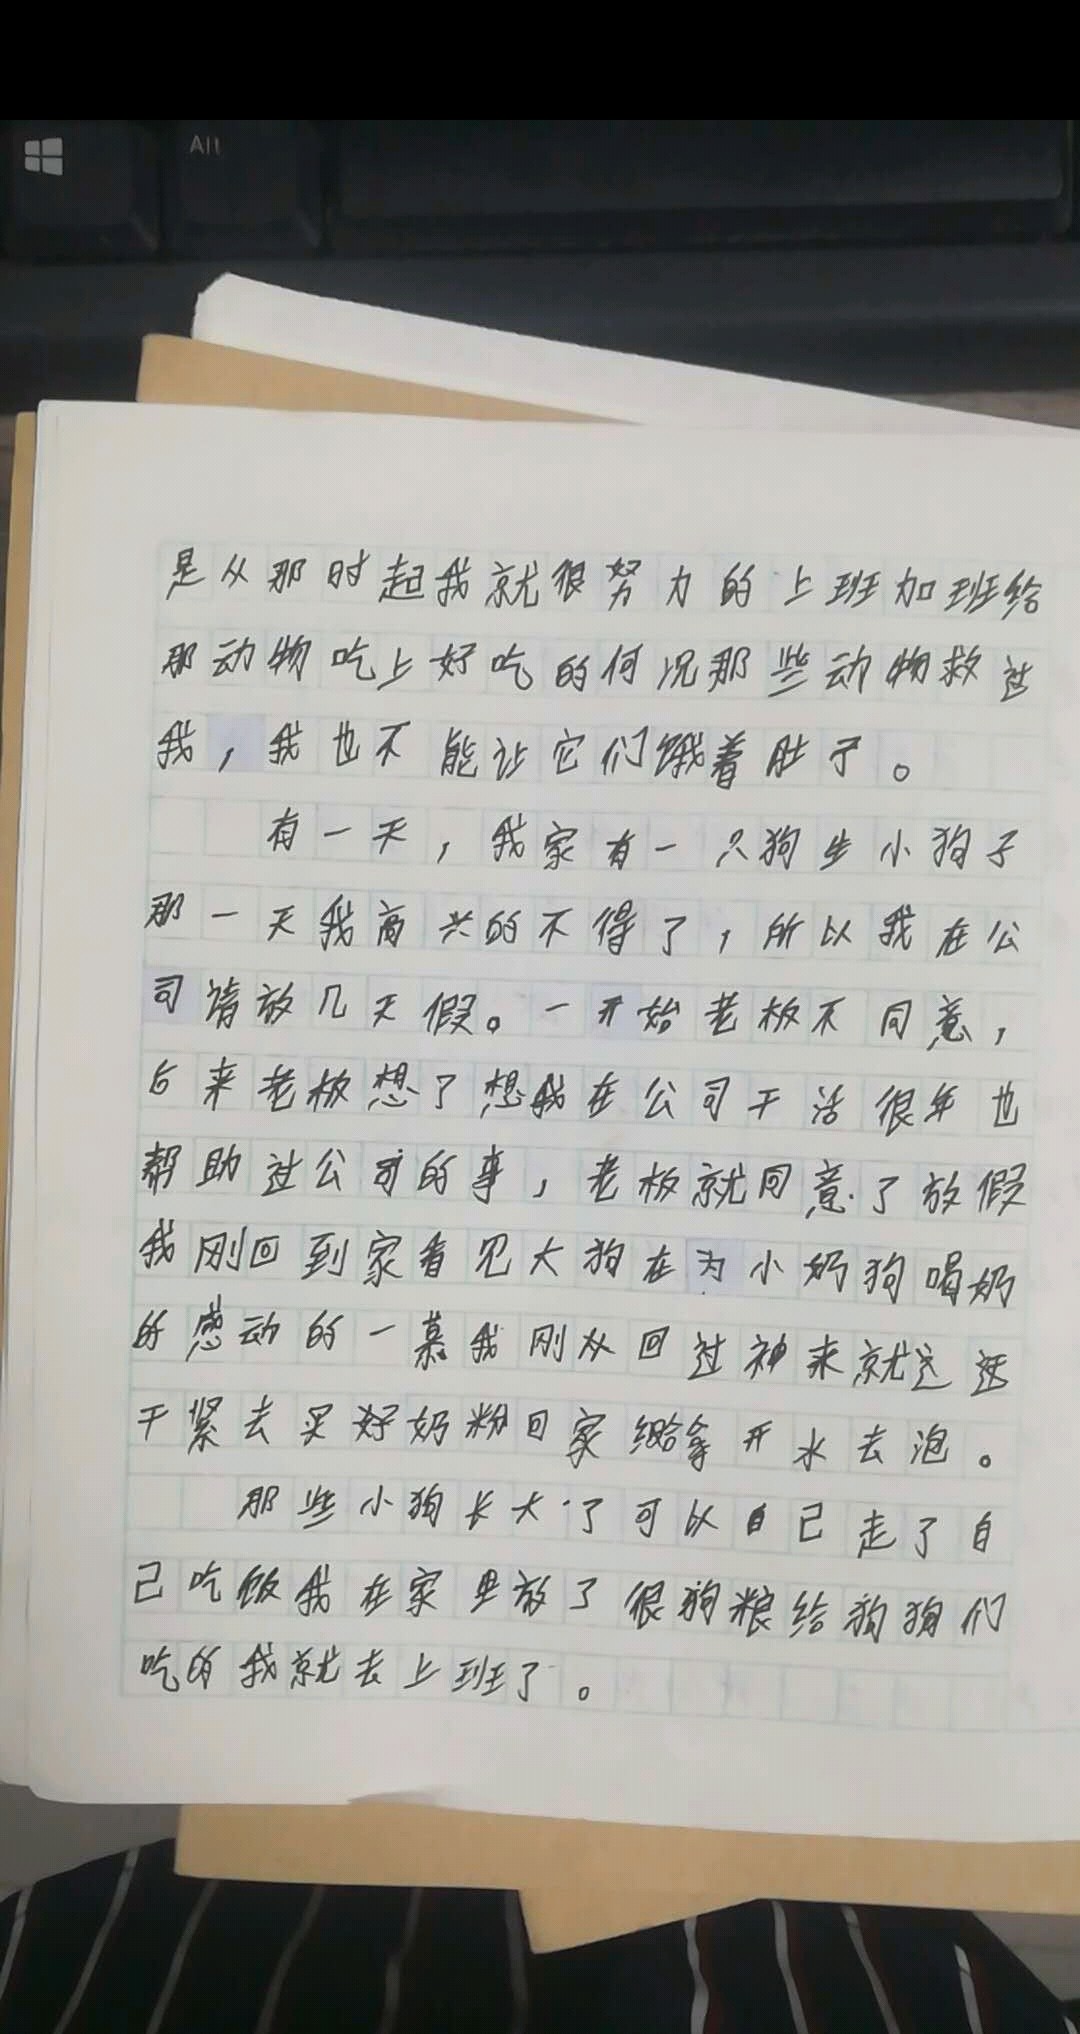 Alt
是从那时起我就很努力的上班加班给
那动物吃上好吃的何况那些动物救过
我，我也不能让它们饿着肚子。
有一天，我家有一只狗生小狗子
那一天我高兴的不得了，所以我在公
司请放几天假。一开始老板不同意，
后来老板想了想我在公司干活很年也
帮助过公司的事，老板就同意了放假
我刚回到家看见大狗在为小奶狗喝奶
的感动的一幕我刚从回过神来就
干紧去买好奶粉回家拿开水去泡。
那些小狗长大了可以自己走了自
己吃饭我在家里放了很狗粮给狗狗们
吃的我就去上班了。